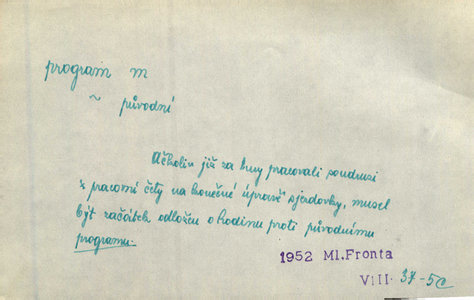 program m
~ původní
Ačkoliv již za tmy pracovali soudruzi
z pracovní čety na konečné úpravě sjezdovky, musel
být začátek odložen o hodinu proti původnímu
programu.
1952 Ml.Fronta
VIII. 37-5c